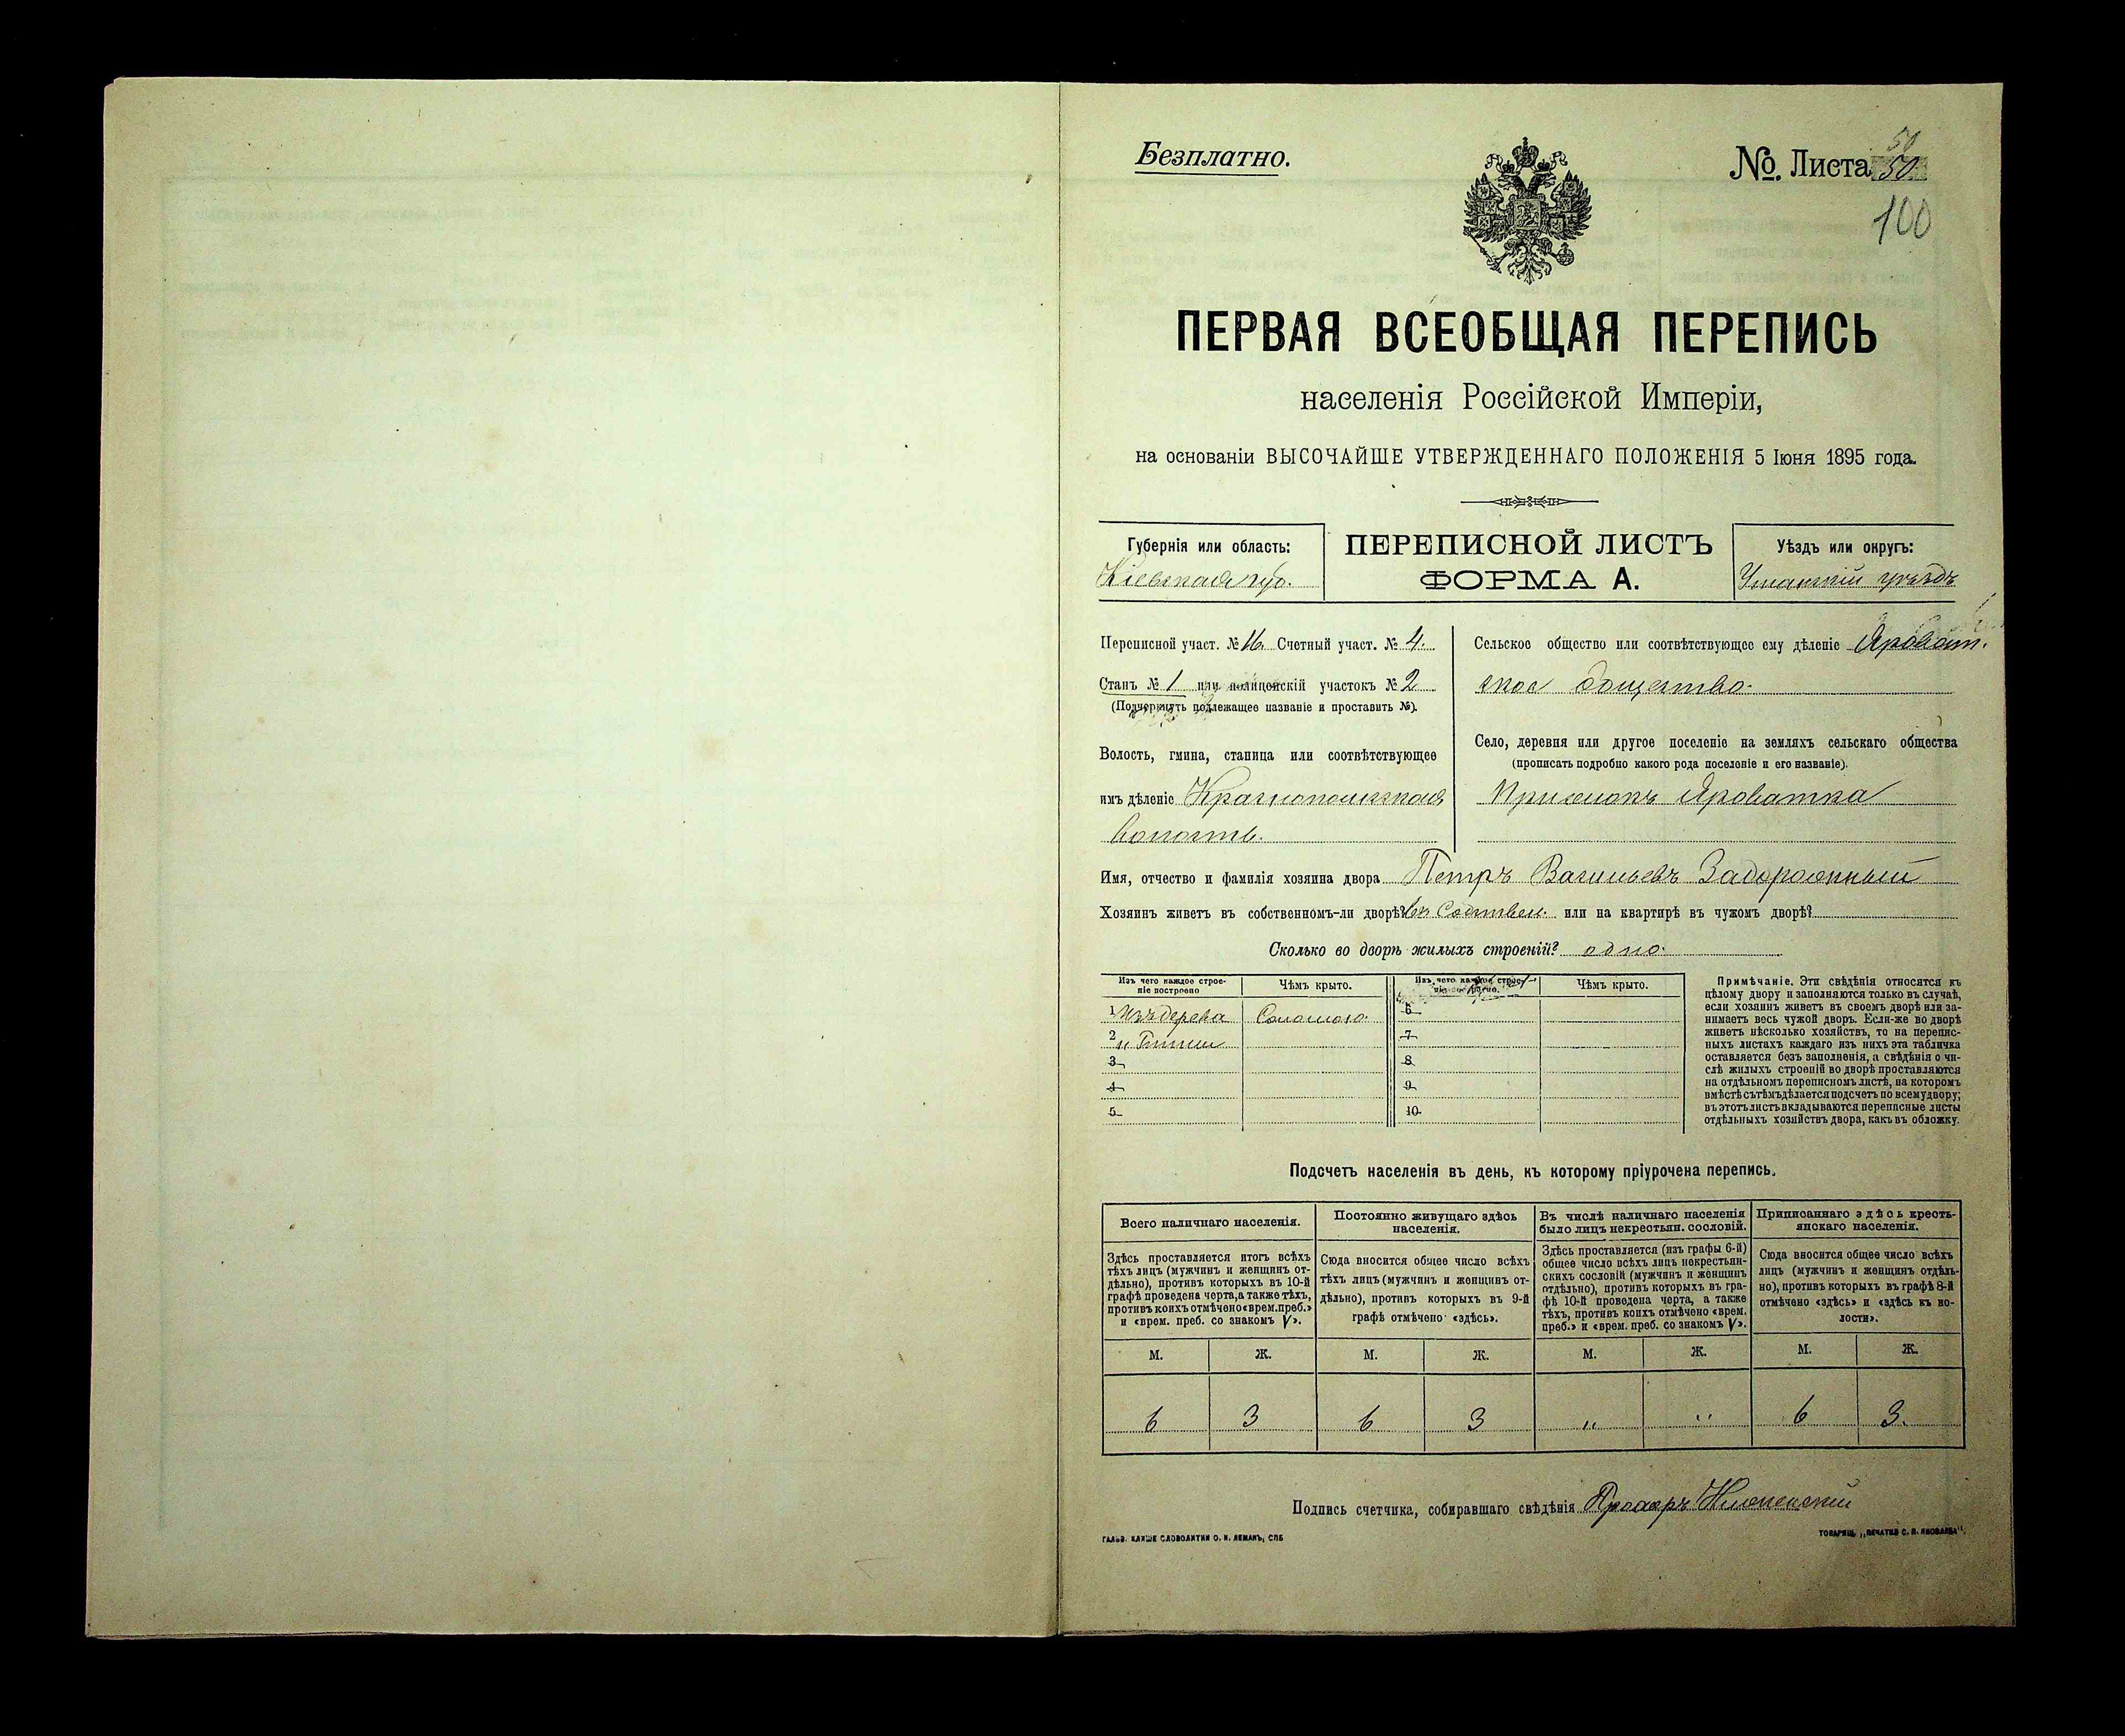 Безплатно.
№ Листа 50
50
100
ПЕРВАЯ ВСЕОБЩАЯ ПЕРЕПИСЬ
населенія Россійской Имперіи,
на основаніи ВЫСОЧАЙШЕ УТВЕРЖДЕННАГО ПОЛОЖЕНІЯ 5 Іюня 1895 года.
Губернія или область:
Кіевская губ.
ПЕРЕПИСНОЙ ЛИСТЪ
ФОРМА А.
Уѣздъ или округъ:
Уманскій уѣздъ
Переписной участ. № 16 Счетный участ. № 4.
Станъ № 1 или полицейскій участокъ № 2
(Подчеркнуть подлежащее названіе и проставить №).
Волость, гмина, станица или соотвѣтствующее
имъ дѣленіе Краснопольская
волость.
Сельское общество или соотвѣтствующее ему дѣленіе Яроват.
ское общество.
Село, деревня или другое поселеніе на земляхъ сельскаго общества
(прописать подробно какого рода поселеніе и его названіе).
Яроватка
Имя, отчество и фамилія хозяина двора Петръ Васильевъ Задорожный
Хозяинъ живетъ въ собственномъ-ли дворѣ? въ Собствен. или на квартирѣ въ чужомъ дворѣ?
Сколько во дворѣ жилыхъ строеній? одно.
Изъ чего каждое строе-
ніе построено
Чѣмъ крыто.
Изъ чего каждое строе-
ніе построено.
Чѣмъ крыто.
1 Изъ дерева Соломою
2 и Глины
3
4
5
6
7
8
9
10
Примѣчаніе. Эти свѣдѣнія относятся къ
цѣлому двору и заполняются только въ случаѣ,
если хозяинъ живетъ въ своемъ дворѣ или за-
нимаетъ весь чужой дворъ. Если-же во дворѣ
живетъ нѣсколько хозяйствъ, то на перепис-
ныхъ листахъ каждаго изъ нихъ эта табличка
оставляется безъ заполненія, а свѣдѣнія о чи-
слѣ жилыхъ строеній во дворѣ проставляются
на отдѣльномъ переписномъ листѣ, на которомъ
вмѣстѣ съ тѣмъ дѣлается подсчетъ по всему двору;
въ этотъ листъ вкладываются переписные листы
отдѣльныхъ хозяйствъ двора, какъ въ обложку.
Подсчетъ населенія въ день, къ которому пріурочена перепись.
Всего наличнаго населенія.
Здѣсь проставляется итогъ всѣхъ
тѣхъ лицъ (мужчинъ и женщинъ от-
дѣльно), противъ которыхъ въ 10-й
графѣ проведена черта, а также тѣхъ,
противъ коихъ отмѣчено «врем. преб.»
и «врем. преб. со знакомъ V».
Постоянно живущаго здѣсь
населенія.
Сюда вносится общее число всѣхъ
тѣхъ лицъ (мужчинъ и женщинъ от-
дѣльно), противъ которыхъ въ 9-й
графѣ отмѣчено «здѣсь».
Въ числѣ наличнаго населенія
было лицъ некрестьян. сословій.
Здѣсь проставляется (изъ графы 6-й)
общее число всѣхъ лицъ некрестьян-
скихъ сословій (мужчинъ и женщинъ
отдѣльно), противъ которыхъ въ гра-
фѣ 10-й проведена черта, а также
тѣхъ, противъ коихъ отмѣчено «врем.
преб.» и «врем. преб. со знакомъ V».
Приписаннаго здѣсь кресть-
янскаго населенія.
Сюда вносится общее число всѣхъ
лицъ (мужчинъ и женщинъ отдѣль-
но), противъ которыхъ въ графѣ 8-й
отмѣчено «здѣсь» и «здѣсь къ во-
лости».
М. Ж. М. Ж. М. Ж. М. Ж.
6 3 6 3 „ „ 6 3.
Подпись счетчика, собиравшаго свѣдѣнія Прохоръ
ГАЛЬВ. КЛИШЕ СЛОВОЛИТНИ О. И. ЛЕМАНЪ, СПБ
ТОВАРИЩ. „ПЕЧАТНЯ С. П. ЯКОВЛЕВА".